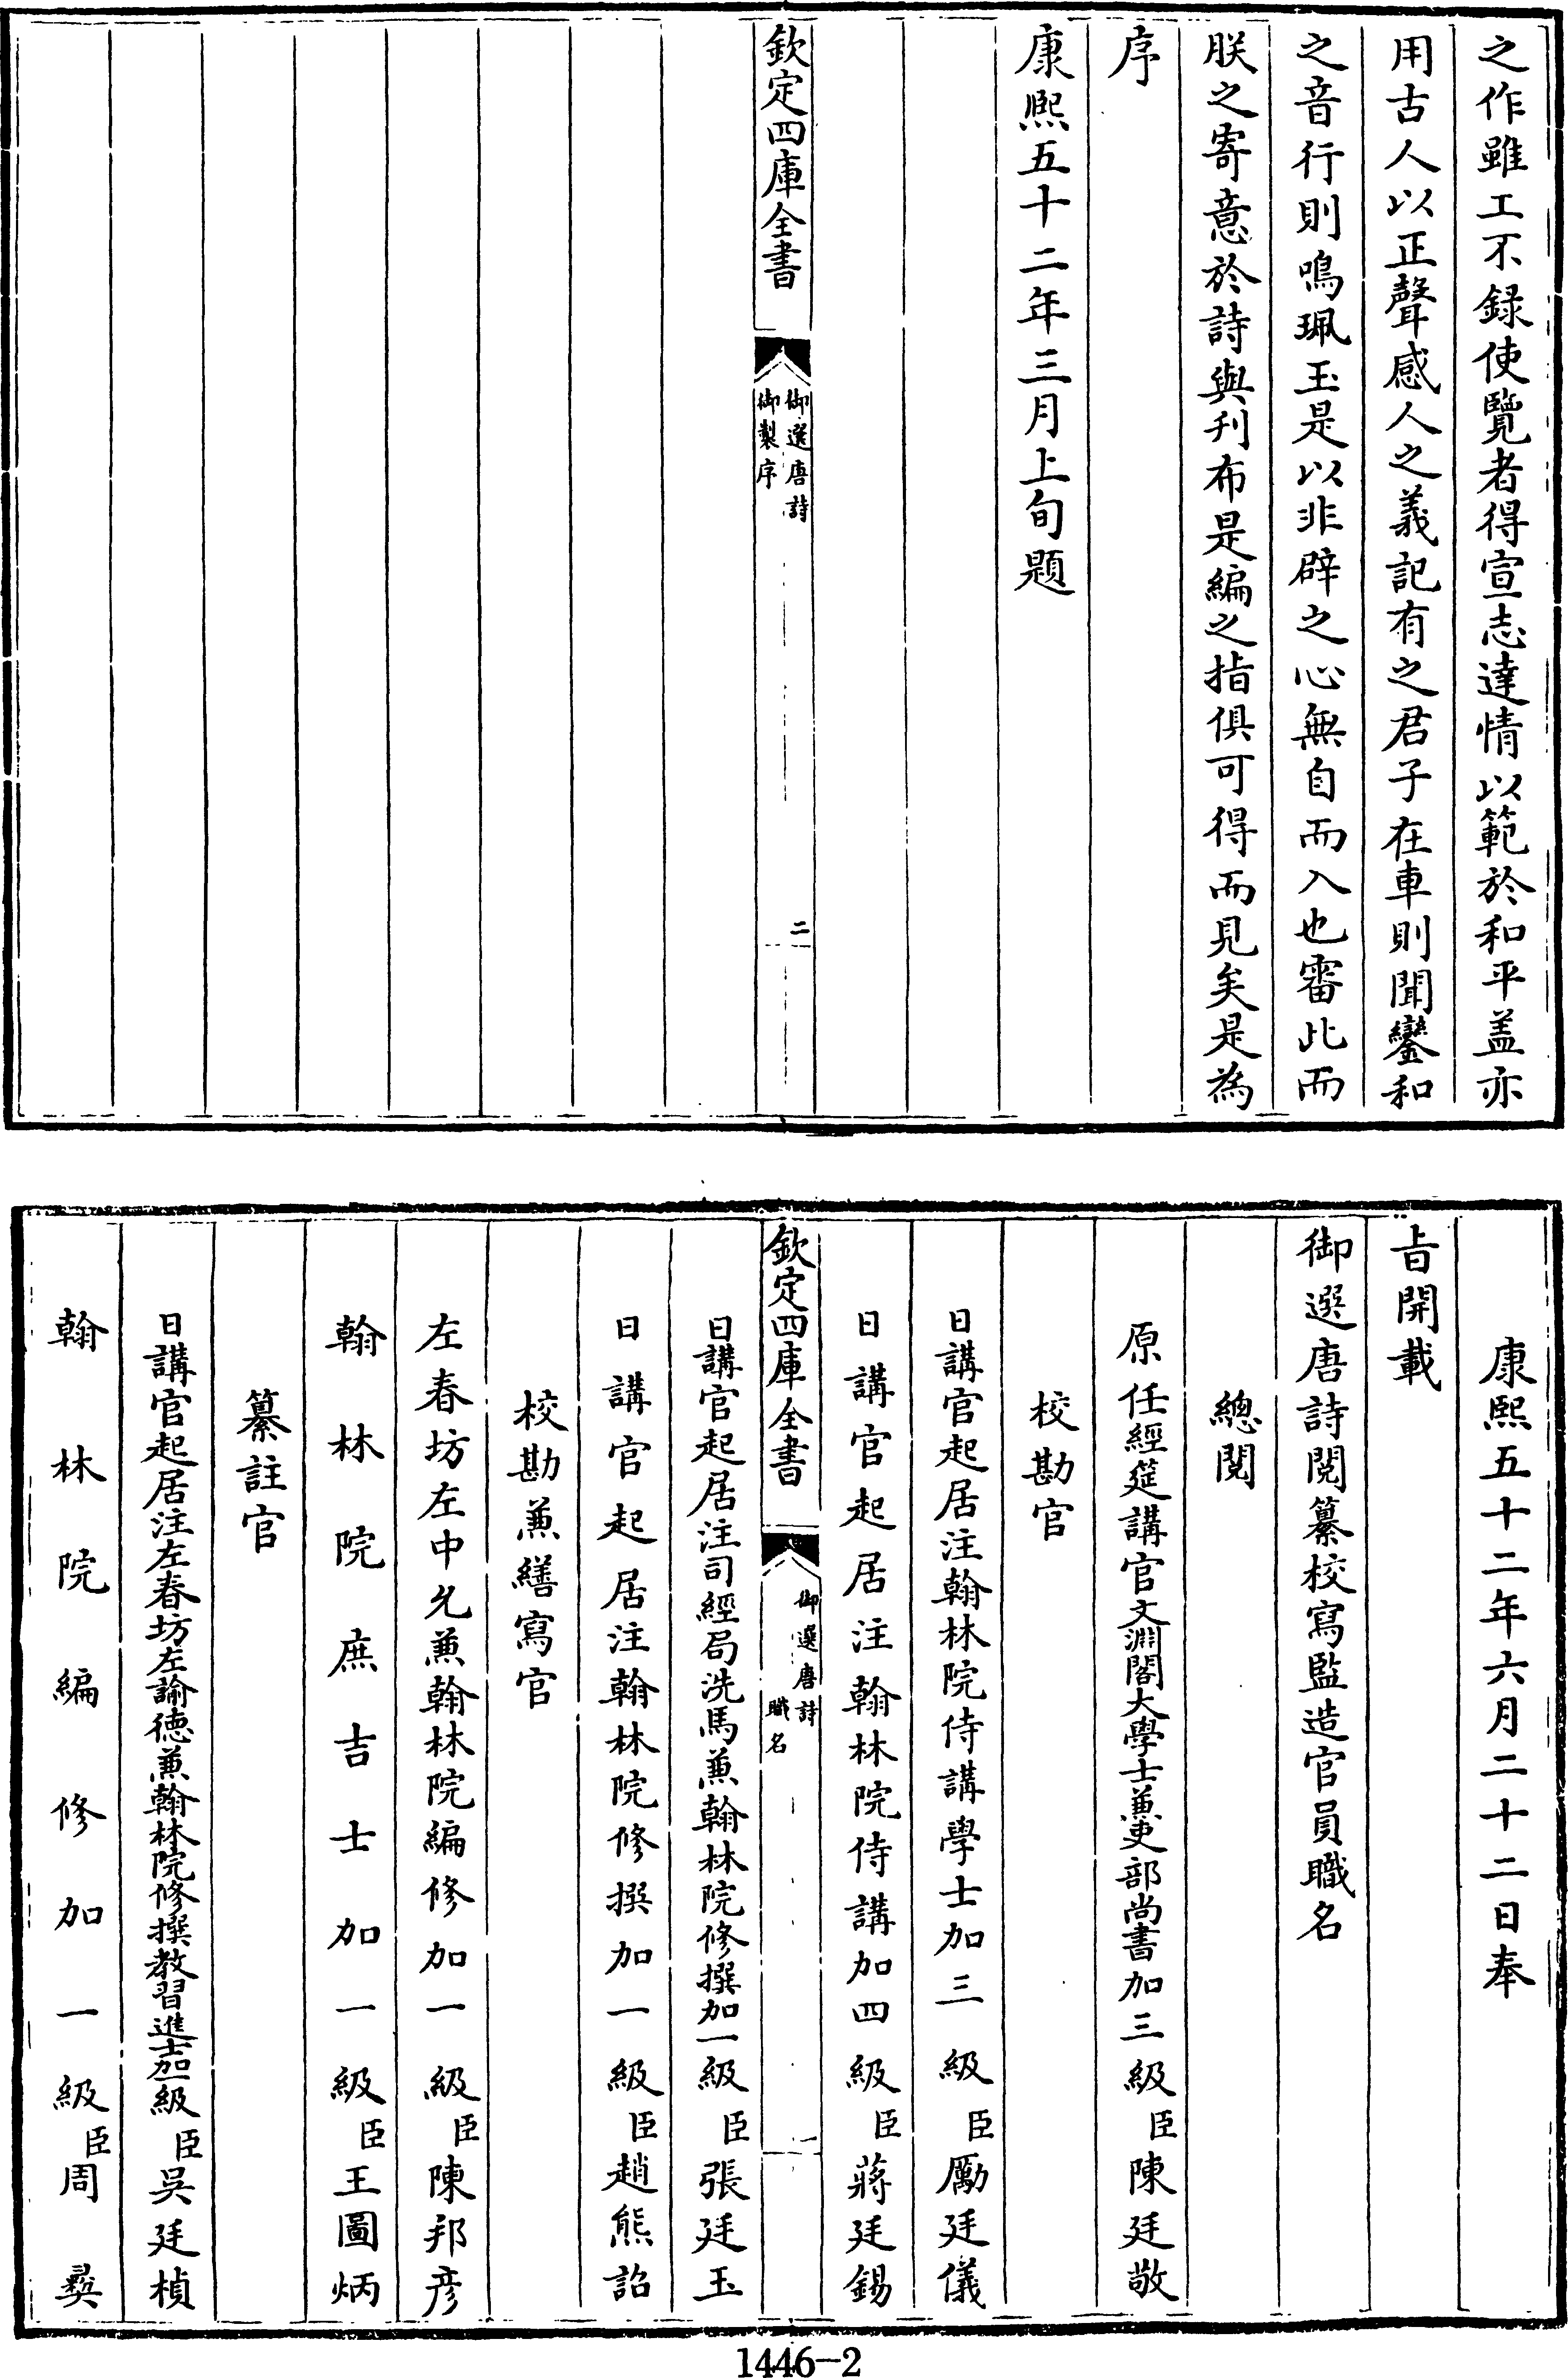 之作雖工不録使覽者得宣志達情以範於和平盖亦
用古人以正聲感人之義記有之君子在車則聞鑾和
之音行則鳴珮玉是以非辟之心無自而入也審此而
朕之寄意於詩與刋布是編之指俱可得而見矣是為
序
康熙五十二年三月上旬題
欽定四庫全書
御選唐詩
御製序
二
康熙五十二年六月二十二日奉
㫖開載
御選唐詩閱纂校寫監造官員職名
總閱
原任經筵講官文淵閣大學士兼吏部尚書加三級臣陳廷敬
校勘官
日講官起居注翰林院侍講學士加三級臣勵廷儀
日講官起居注翰林院侍講加四級臣蔣廷錫
欽定四庫全書
御選唐詩
職名
一
日講官起居注司經局洗馬兼翰林院修撰加一級臣張廷玉
日講官起居注翰林院修撰加一級臣趙熊詔
校勘兼繕寫官
左春坊左中允兼翰林院編修加一級臣陳邦彦
翰林院庶吉士加一級臣王圖炳
纂註官
日講官起居注左春坊左諭德兼翰林院修撰教習進士加一級臣吳廷楨
翰林院編修加一級臣周彝
1446-2